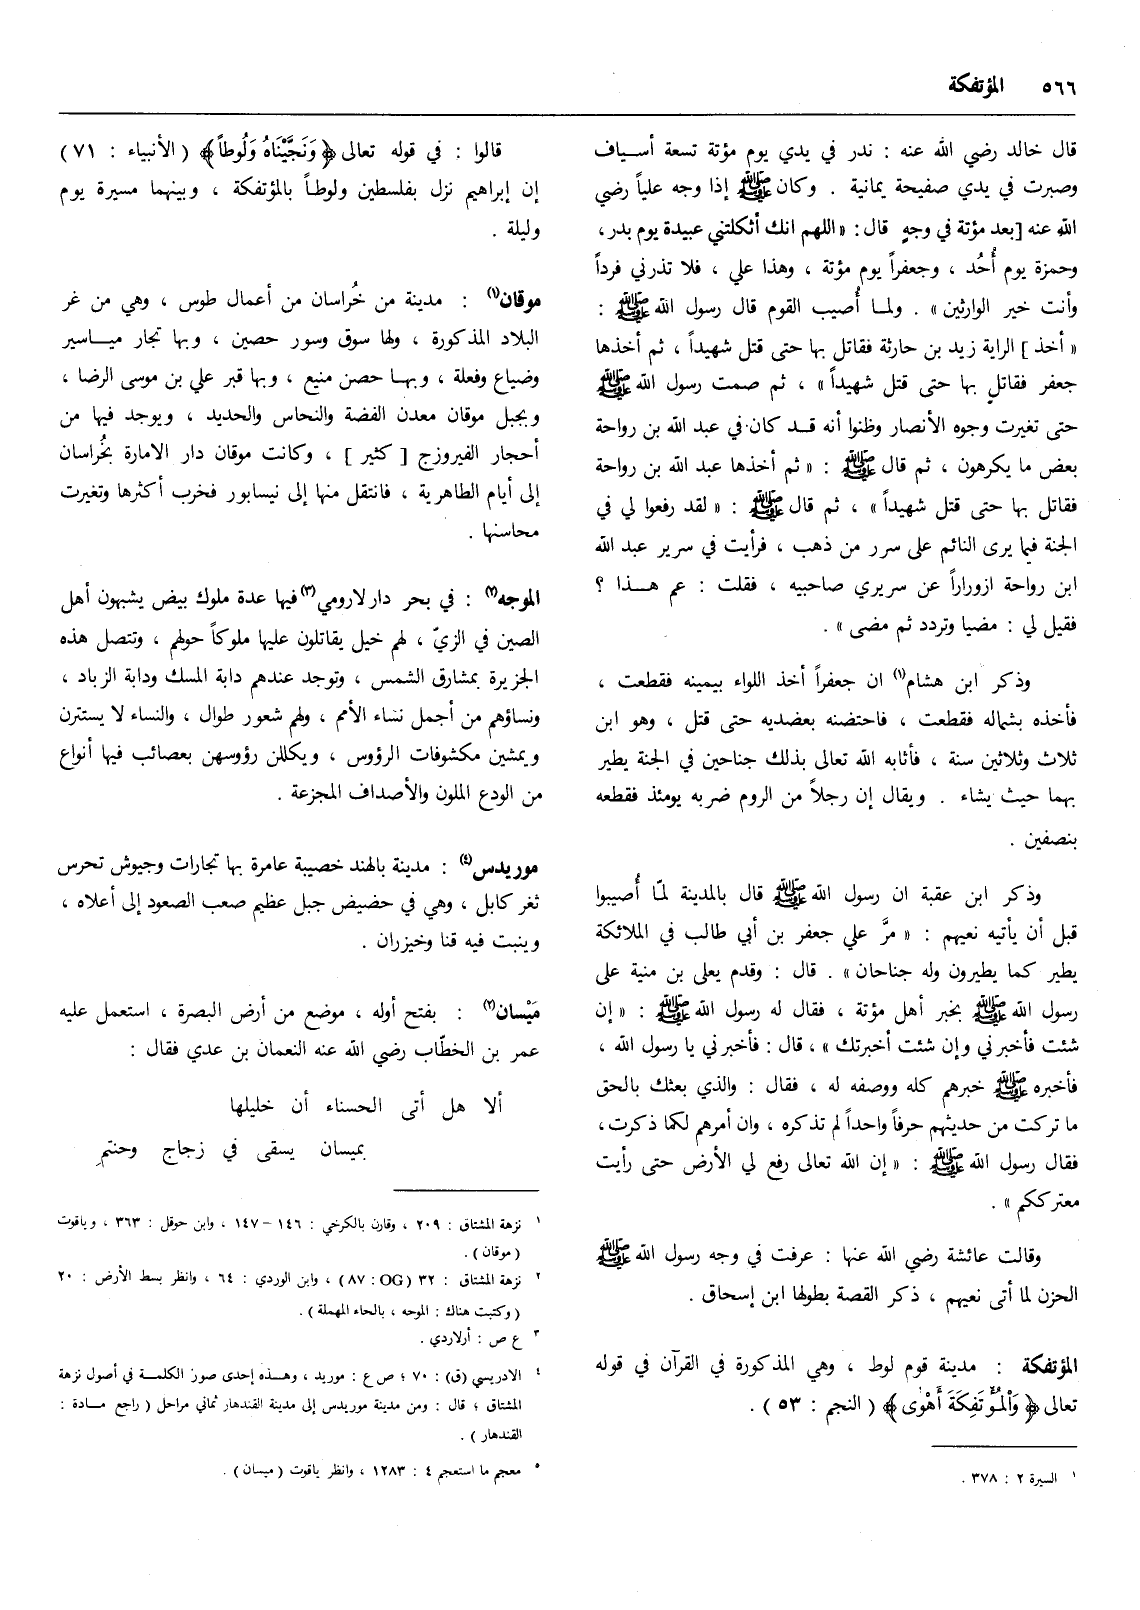 ٥٦٦ المؤتفكة
قال خالد رضي الله عنه : ندر في يدي يوم مؤتة تسعة أسياف
وصبرت في يدي صفيحة يمانية . وكان ﷺ إذا وجه علياً رضي
الله عنه [بعد مؤتة في وجهٍ قال : « اللهم انك أثكلتني عبيدة يوم بدر ،
وحمزة يوم أُحُد ، وجعفراً يوم مؤتة ، وهذا علي ، فلا تذرني فرداً
وأنت خير الوارثين » . ولما أُصيب القوم قال رسول الله ﷺ :
« أخذ ] الراية زيد بن حارثة فقاتل بها حتى قتل شهيداً ، ثم أخذها
جعفر فقاتل بها حتى قتل شهيداً » ، ثم صمت رسول الله ﷺ
حتى تغيرت وجوه الأنصار وظنوا أنه قد كان في عبد الله بن رواحة
بعض ما يكرهون ، ثم قال ﷺ : « ثم أخذها عبد الله بن رواحة
فقاتل بها حتى قتل شهيداً » ، ثم قال ﷺ : « لقد رفعوا لي في
الجنة فيما يرى النائم على سرر من ذهب ، فرأيت في سرير عبد الله
ابن رواحة ازوراراً عن سريري صاحبيه ، فقلت : عم هذا ؟
فقيل لي : مضيا وتردد ثم مضى » .
وذكر ابن هشام(١) ان جعفراً أخذ اللواء بيمينه فقطعت ،
فأخذه بشماله فقطعت ، فاحتضنه بعضديه حتى قتل ، وهو ابن
ثلاث وثلاثين سنة ، فأثابه الله تعالى بذلك جناحين في الجنة يطير
بهما حيث يشاء . ويقال إن رجلاً من الروم ضربه يومئذ فقطعه
بنصفين .
وذكر ابن عقبة ان رسول الله ﷺ قال بالمدينة لمّا أُصيبوا
قبل أن يأتيه نعيهم : « مرَّ علي جعفر بن أبي طالب في الملائكة
يطير كما يطيرون وله جناحان » . قال : وقدم يعلى بن منية على
رسول الله ﷺ بخبر أهل مؤتة ، فقال له رسول الله ﷺ : « إن
شئت فأخبرني وإن شئت أخبرتك » ، قال : فأخبرني يا رسول الله ،
فأخبره ﷺ خبرهم كله ووصفه له ، فقال : والذي بعثك بالحق
ما تركت من حديثهم حرفاً واحداً لم تذكره ، وان أمرهم لكما ذكرت ،
فقال رسول الله ﷺ : « إن الله تعالى رفع لي الأرض حتى رأيت
معترككم » .
وقالت عائشة رضي الله عنها : عرفت في وجه رسول الله ﷺ
الحزن لما أتى نعيهم ، ذكر القصة بطولها ابن إسحاق .
المؤتفكة : مدينة قوم لوط ، وهي المذكورة في القرآن في قوله
تعالى ﴿ وَالْمُؤْتَفِكَةَ أَهْوٰى ﴾ ( النجم : ٥٣ ) .
١ السيرة ٢ : ٣٧٨ .
قالوا : في قوله تعالى ﴿ وَنَجَّيْنَاهُ وَلُوطاً ﴾ ( الأنبياء : ٧١ )
إن إبراهيم نزل بفلسطين ولوطاً بالمؤتفكة ، وبينهما مسيرة يوم
وليلة .
موقان(١) : مدينة من خُراسان من أعمال طوس ، وهي من غر
البلاد المذكورة ، ولها سوق وسور حصين ، وبها تجار مياسير
وضياع وفعلة ، وبها حصن منيع ، وبها قبر علي بن موسى الرضا ،
وبجبل موقان معدن الفضة والنحاس والحديد ، ويوجد فيها من
أحجار الفيروزج [ كثير ] ، وكانت موقان دار الامارة بخُراسان
إلى أيام الطاهرية ، فانتقل منها إلى نيسابور فخرب أكثرها وتغيرت
محاسنها .
الموجه(٢) : في بحر دارلارومي(٣) فيها عدة ملوك بيض يشبهون أهل
الصين في الزيّ ، لهم خيل يقاتلون عليها ملوكاً حولهم ، وتتصل هذه
الجزيرة بمشارق الشمس ، وتوجد عندهم دابة المسك ودابة الزباد ،
ونساؤهم من أجمل نساء الأمم ، ولهم شعور طوال ، والنساء لا يستترن
ويمشين مكشوفات الرؤوس ، ويكللن رؤوسهن بعصائب فيها أنواع
من الودع الملون والأصداف المجزعة .
موريدس(٤) : مدينة بالهند خصيبة عامرة بها تجارات وجيوش تحرس
ثغر كابل ، وهي في حضيض جبل عظيم صعب الصعود إلى أعلاه ،
وينبت فيه قنا وخيزران .
مَيْسان(٢) : بفتح أوله ، موضع من أرض البصرة ، استعمل عليه
عمر بن الخطّاب رضي الله عنه النعمان بن عدي فقال :
ألا هل أتى الحسناء أن خليلها
بميسان يسقى في زجاج وحنتمِ
١ نزهة المشتاق : ٢٠٩ ، وقارن بالكرخي : ١٤٦ – ١٤٧ ، وابن حوقل : ٣٦٣ ، وياقوت
( موقان ) .
٢ نزهة المشتاق : ٣٢ ( OG : ٨٧ ) ، وابن الوردي : ٦٤ ، وانظر بسط الأرض : ٢٠
( وكتبت هناك : الموحه ، بالحاء المهملة ) .
٣ ع ص : أرلاردي .
٤ الادريسي (ق) : ٧٠ ؛ ص ع : موريد ، وهذه إحدى صور الكلمة في أصول نزهة
المشتاق ؛ قال : ومن مدينة موريدس إلى مدينة القندهار ثماني مراحل ( راجع مادة :
القندهار ) .
٥ معجم ما استعجم ٤ : ١٢٨٣ ، وانظر ياقوت ( ميسان ) .